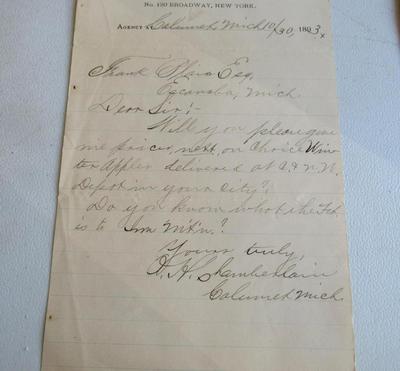 No. 120 BROADWAY, NEW YORK.
AGENCY Calumet Mich 10/30, 1893,
Frank Esq,
Escanaba, Mich.
Dear Sir:-
Will you please give
me price, next, on Choice Win-
ter Apples delivered at C. & N. W.
Depot in your City?
Do you know what the Frt.
is to Iron Mt'n.?
Yours truly,
H. Chamberlain
Calumet Mich.